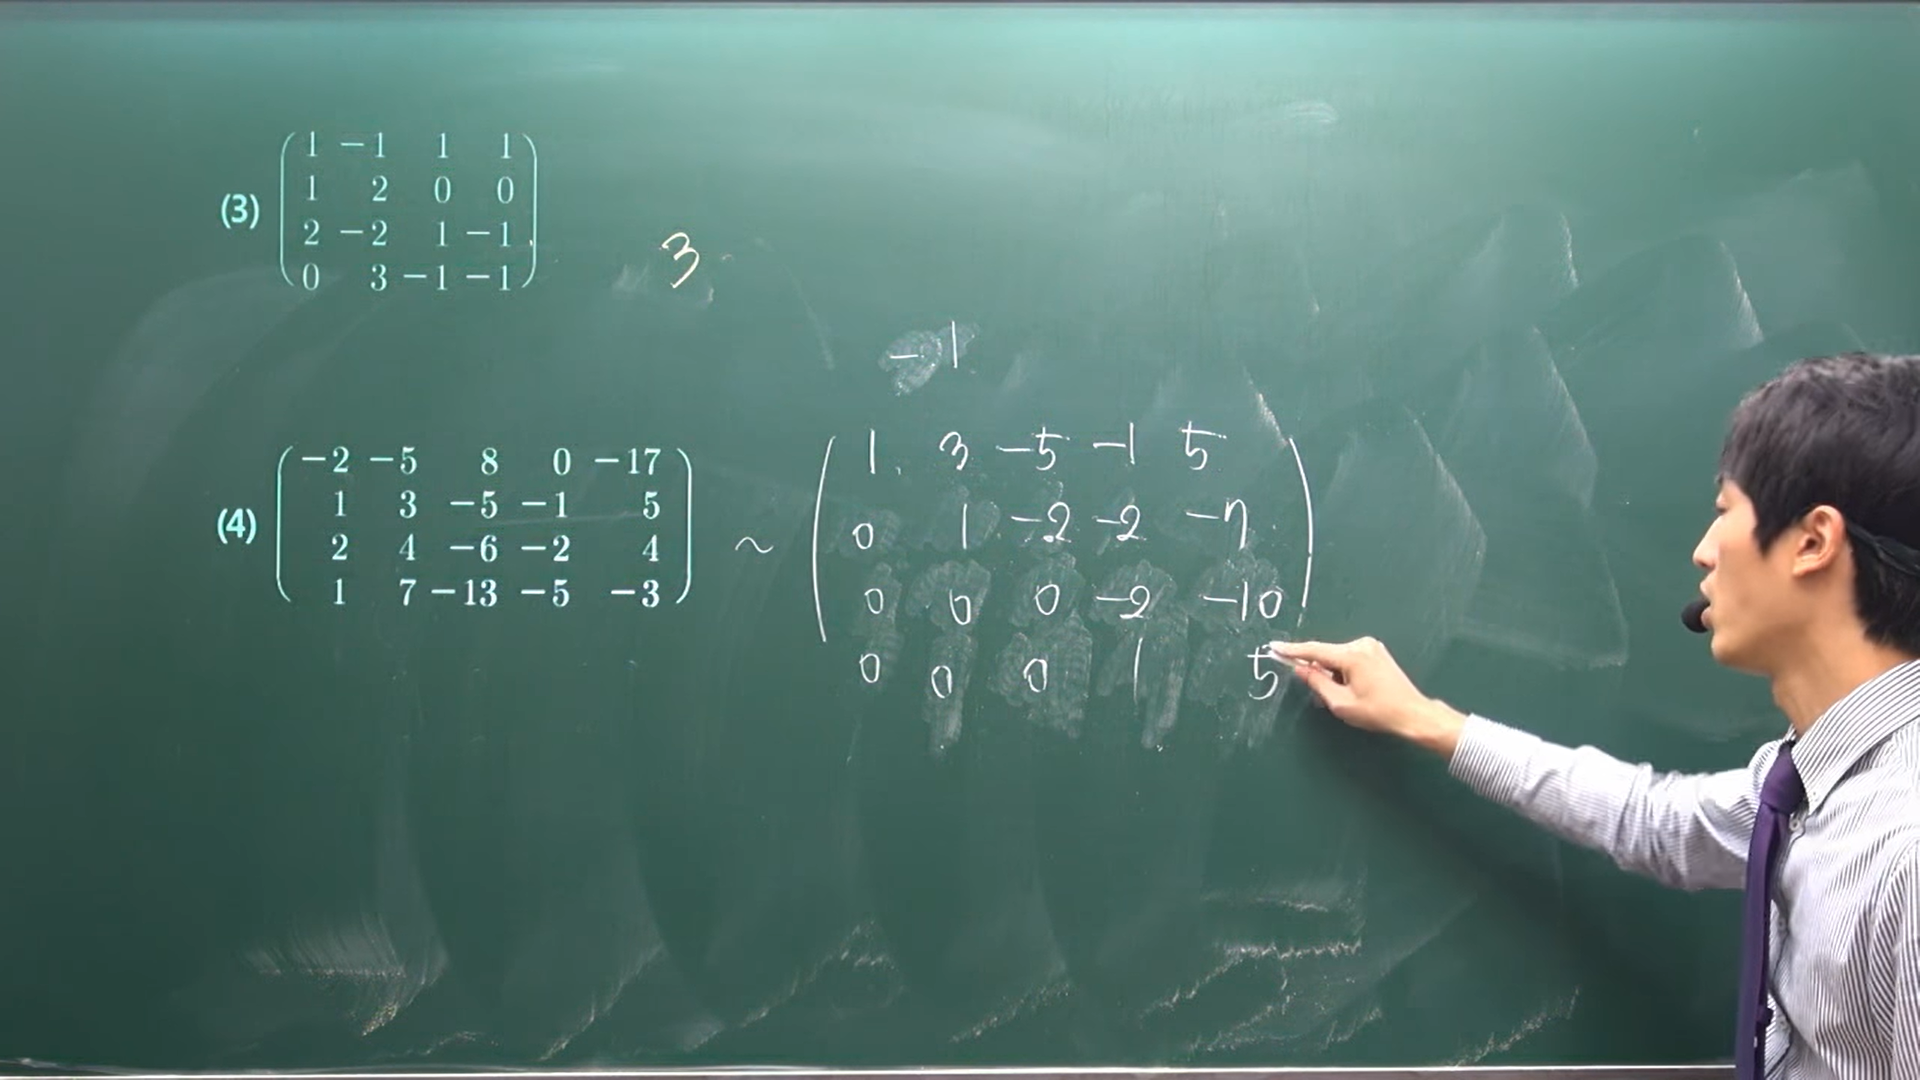 (3)
1 −1 1 1
1 2 0 0
2 −2 1 −1
0 3 −1 −1
3
−1
(4)
−2 −5 8 0 −17
1 3 −5 −1 5
2 4 −6 −2 4
1 7 −13 −5 −3
~
1 3 −5 −1 5
0 1 −2 −2 −7
0 0 0 −2 −10
0 0 0 1 5